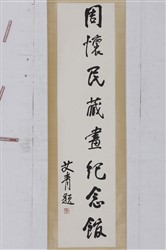 周懷民藏畫紀念館
艾青題